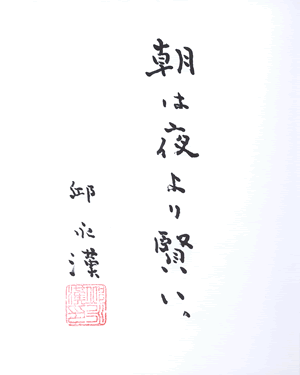 朝は夜より賢い。
邱永漢